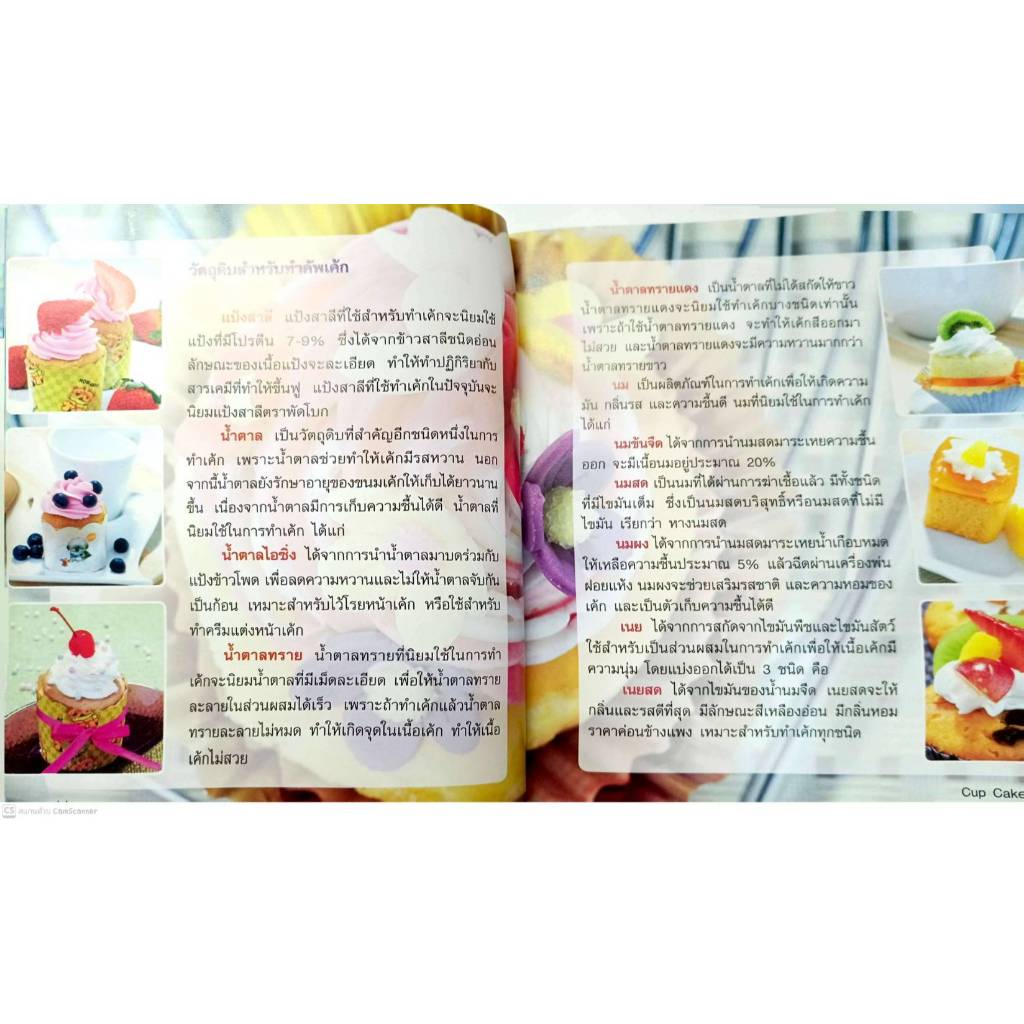 วัตถุดิบสำหรับทำคัพเค้ก
แป้งสาลี แป้งสาลีที่ใช้สำหรับทำเค้กจะนิยมใช้
แป้งที่มีโปรตีน 7-9% ซึ่งได้จากข้าวสาลีชนิดอ่อน
ลักษณะของเนื้อแป้งจะละเอียด ทำให้ทำปฏิกิริยากับ
สารเคมีที่ทำให้ขึ้นฟู แป้งสาลีที่ใช้ทำเค้กในปัจจุบันจะ
นิยมแป้งสาลีตราพัดโบก
น้ำตาล เป็นวัตถุดิบที่สำคัญอีกชนิดหนึ่งในการ
ทำเค้ก เพราะน้ำตาลช่วยทำให้เค้กมีรสหวาน นอก
จากนี้น้ำตาลยังรักษาอายุของขนมเค้กให้เก็บได้ยาวนาน
ขึ้น เนื่องจากน้ำตาลมีการเก็บความชื้นได้ดี น้ำตาลที่
นิยมใช้ในการทำเค้ก ได้แก่
น้ำตาลไอซิ่ง ได้จากการนำน้ำตาลมาบดร่วมกับ
แป้งข้าวโพด เพื่อลดความหวานและไม่ให้น้ำตาลจับกัน
เป็นก้อน เหมาะสำหรับไว้โรยหน้าเค้ก หรือใช้สำหรับ
ทำครีมแต่งหน้าเค้ก
น้ำตาลทราย น้ำตาลทรายที่นิยมใช้ในการทำ
เค้กจะนิยมน้ำตาลที่มีเม็ดละเอียด เพื่อให้น้ำตาลทราย
ละลายในส่วนผสมได้เร็ว เพราะถ้าทำเค้กแล้วน้ำตาล
ทรายละลายไม่หมด ทำให้เกิดจุดในเนื้อเค้ก ทำให้เนื้อ
เค้กไม่สวย
น้ำตาลทรายแดง เป็นน้ำตาลที่ไม่ได้สกัดให้ขาว
น้ำตาลทรายแดงจะนิยมใช้ทำเค้กบางชนิดเท่านั้น
เพราะถ้าใช้น้ำตาลทรายแดง จะทำให้เค้กสีออกมา
ไม่สวย และน้ำตาลทรายแดงจะมีความหวานมากกว่า
น้ำตาลทรายขาว
นม เป็นผลิตภัณฑ์ในการทำเค้กเพื่อให้เกิดความ
มัน กลิ่นรส และความชื้นดี นมที่นิยมใช้ในการทำเค้ก
ได้แก่
นมข้นจืด ได้จากการนำนมสดมาระเหยความชื้น
ออก จะมีเนื้อนมอยู่ประมาณ 20%
นมสด เป็นนมที่ได้ผ่านการฆ่าเชื้อแล้ว มีทั้งชนิด
ที่มีไขมันเต็ม ซึ่งเป็นนมสดบริสุทธิ์หรือนมสดที่ไม่มี
ไขมัน เรียกว่า หางนมสด
นมผง ได้จากการนำนมสดมาระเหยน้ำเกือบหมด
ให้เหลือความชื้นประมาณ 5% แล้วฉีดผ่านเครื่องพ่น
ฝอยแห้ง นมผงจะช่วยเสริมรสชาติ และความหอมของ
เค้ก และเป็นตัวเก็บความชื้นได้ดี
เนย ได้จากการสกัดจากไขมันพืชและไขมันสัตว์
ใช้สำหรับเป็นส่วนผสมในการทำเค้กเพื่อให้เนื้อเค้กมี
ความนุ่ม โดยแบ่งออกได้เป็น 3 ชนิด คือ
เนยสด ได้จากไขมันของน้ำนมจืด เนยสดจะให้
กลิ่นและรสดีที่สุด มีลักษณะสีเหลืองอ่อน มีกลิ่นหอม
ราคาค่อนข้างแพง เหมาะสำหรับทำเค้กทุกชนิด
Cup Cake
CS สแกนด้วย CamScanner